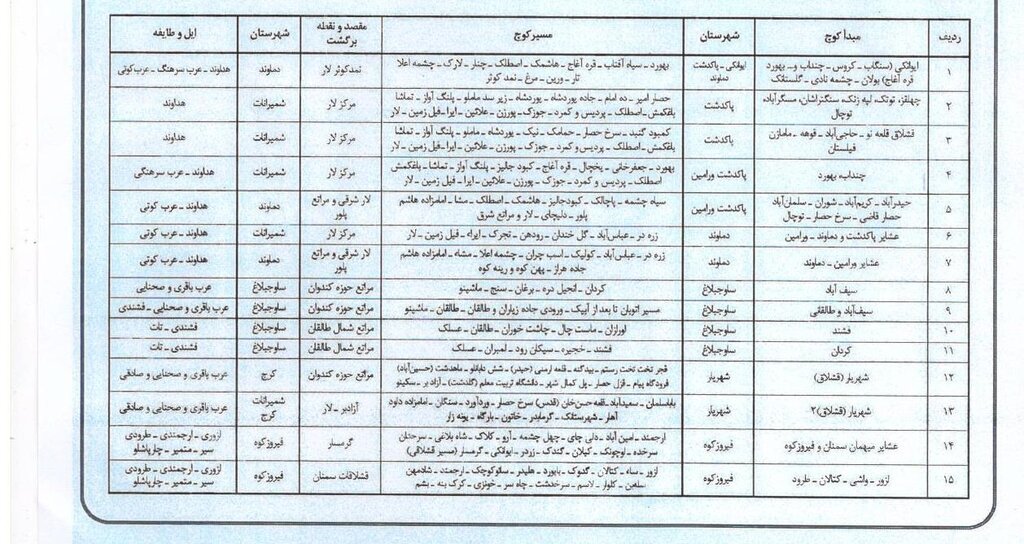 ردیف مبدأ کوچ شهرستان مسیر کوچ مقصد و نقطه برگشت شهرستان ایل و طایفه
۱ ایوانکی (سنگاب ـ کروس ـ چنداب و ـ بهورد ایوانکی ـ پاکدشت بهورد ـ سیاه آفتاب ـ قره آغاج ـ هاشمک ـ اصطلک ـ چنار ـ لارک ـ چشمه اعلا نمدکوثر لار دماوند هداوند ـ عرب سرهنگ ـ عرب‌کوتی
قره آغاج) بولان ـ چشمه نادی ـ گلستانک دماوند تار ـ ورین ـ مرغ ـ نمد کوثر
۲ چهلقز، توتک، لپه زنک، سنگتراشان، مسگرآباد، پاکدشت حصار امیر ـ ده امام ـ جاده پوردشاه ـ پوردشاه ـ زیر سد ماملو ـ پلنگ آواز ـ تماشا مرکز لار شمیرانات هداوند
توچال باغکمش ـ اصطلک ـ پردیس و کمرد ـ جوزک ـ پورزن ـ علائین ـ ایرا ـ فیل زمین ـ لار
۳ قشلاق قلعه نو ـ حاجی‌آباد ـ قوهه ـ مامازن پاکدشت کمبود گنبد ـ سرخ حصار ـ حمامک ـ نیک ـ پوردشاه ـ ماملو ـ پلنگ آواز ـ تماشا مرکز لار شمیرانات هداوند
فیلستان باغکمش ـ اصطلک ـ پردیس و کمرد ـ جوزک ـ پورزن ـ علائین ـ ایرا ـ فیل زمین ـ لار
۴ چنداب، بهورد پاکدشت ورامین بهورد ـ جعفرخانی ـ یخچال ـ قره آغاج ـ کبود جالیز ـ پلنگ آواز ـ تماشا ـ باغکمش مرکز لار شمیرانات هداوند ـ عرب سرهنگی
اصطلک ـ پردیس و کمرد ـ جوزک ـ پورزن ـ علائین ـ ایرا ـ فیل زمین ـ لار
۵ حیدرآباد ـ کریم‌آباد ـ شوران ـ سلمان‌آباد پاکدشت ورامین سیاه چشمه ـ پاچالک ـ کبودجالیز ـ هاشمک ـ اصطلک ـ مشا ـ امامزاده هاشم لار شرقی و مراتع دماوند هداوند ـ عرب کوتی
حصار قاضی ـ سرخ حصار ـ توچال پلور ـ دلیچای ـ لار و مراتع شرق پلور
۶ عشایر پاکدشت و دماوند ـ ورامین دماوند زره در ـ عباس‌آباد ـ گل خندان ـ رودهن ـ تجرک ـ ایراء ـ فیل زمین ـ لار مرکز لار شمیرانات هداوند ـ عرب کوتی
۷ عشایر ورامین ـ دماوند دماوند زره در ـ عباس‌آباد ـ کولیک ـ اسب چران ـ چشمه اعلا ـ مشاء ـ امامزاده هاشم لار شرقی و مراتع دماوند هداوند ـ عرب کوتی
جاده هراز ـ پهن کوه و رینه کوه پلور
۸ سیف آباد ساوجبلاغ کردان ـ انجیل دره ـ برغان ـ سنج ـ ماشینو مراتع حوزه کندوان ساوجبلاغ عرب باقری و صحنایی
۹ سیف‌آباد و طالقانی ساوجبلاغ مسیر اتوبان تا بعد از آبیک ـ ورودی جاده زیاران و طالقان ـ طالقان ـ ماشینو مراتع حوزه کندوان ساوجبلاغ عرب باقری و صحنایی ـ فشندی
۱۰ فشند ساوجبلاغ اورازان ـ ماست چال ـ چاشت خوران ـ طالقان ـ عسلک مراتع شمال طالقان ساوجبلاغ فشندی ـ تات
۱۱ کردان ساوجبلاغ فشند ـ خجیره ـ سیکان رود ـ لمبران ـ عسلک مراتع شمال طالقان ساوجبلاغ فشندی ـ تات
۱۲ شهریار (قشلاق) شهریار قجر تخت تخت رستم ـ بیدگنه ـ قلعه ارمنی (حیدر) ـ شش دانگلو ـ ماهدشت (حسین‌آباد) مراتع حوزه کندوان کرج عرب باقری و صحنایی و صادقی
فرودگاه پیام ـ قزل حصار ـ پل کمال شهر ـ دانشگاه تربیت معلم (گلدشت) ـ آزاد بر ـ سکینو
۱۳ شهریار (قشلاق)۲ شهریار باباسلمان ـ سعیدآباد ـ قلعه حسن‌خان (قدس) سرخ حصار ـ وردآورد ـ سنگان ـ امامزاده داود آزادبر ـ لار شمیرانات عرب باقری و صحنایی و صادقی
آهار ـ شهرستانک ـ گرمابدر ـ خاتون ـ بارگاه ـ پونه زار کرج
۱۴ عشایر میهمان سمنان و فیروزکوه فیروزکوه ارجمند ـ امین آباد ـ دلی چای ـ چهل چشمه ـ آرو ـ کلاک ـ شاه بلاغی ـ سرحتان گرمسار فیروزکوه ازوری ـ ارجمندی ـ طرودی
سرخده ـ اوچونک ـ کیلان ـ گندک ـ زردر ـ ایوانکی ـ گرمسار (مسیر قشلاقی) سیر ـ متمیر ـ چارپاشلو
۱۵ ازور ـ واشی ـ کتالان ـ طرود فیروزکوه ازور ـ ساه ـ کتالان ـ گدوک ـ بایورد ـ هلیدر ـ ساتوکوچک ـ ارجمند ـ شادمهن قشلاقات سمنان فیروزکوه ازوری ـ ارجمندی ـ طرودی
کلوار ـ لاسم ـ سرخدشت ـ چاه سر ـ خونزی ـ کرک بنه ـ بشم سیر ـ متمیر ـ چارپاشلو